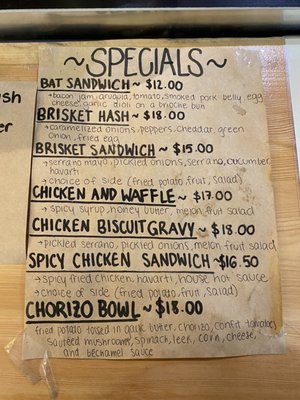 ~SPECIALS~
BAT SANDWICH ~ $12.00
→bacon jam, arugula, tomato, smoked pork belly, egg
cheese, garlic aioli on a brioche bun
BRISKET HASH ~ $18.00
→caramelized onions, peppers, cheddar, green
onion, fried egg
BRISKET SANDWICH ~ $15.00
→serrano mayo, pickled onions, serrano, cucumber,
havarti
→ choice of side (fried potato, fruit, salad)
CHICKEN AND WAFFLE ~ $17.00
→ spicy syrup, honey butter, melon fruit salad
CHICKEN BISCUIT GRAVY ~ $18.00
→pickled serrano, pickled onions, melon fruit salad
SPICY CHICKEN SANDWICH ~$16.50
→ spicy fried chicken, havarti, house hot sauce
→ choice of side (fried potato, fruit, salad)
CHORIZO BOWL ~ $18.00
fried potato tossed in garlic butter, chorizo, confit tomatoes,
sautéed mushrooms, spinach, leek, corn, cheese,
and bechamel sauce